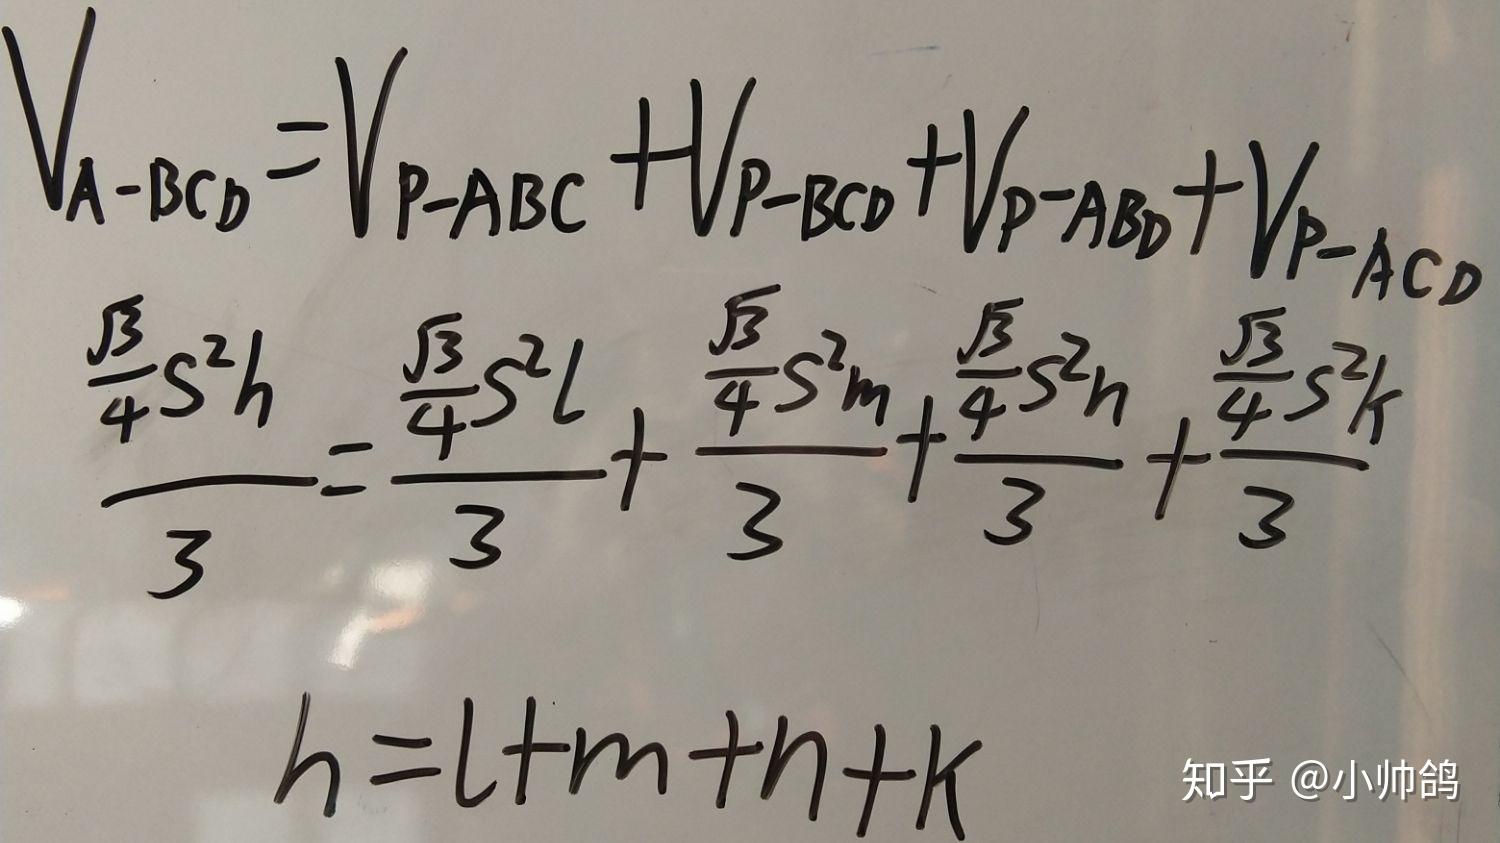 V_{A-BCD} = V_{P-ABC} + V_{P-BCD} + V_{P-ABD} + V_{P-ACD}
\frac{\frac{\sqrt{3}}{4}S^2h}{3} = \frac{\frac{\sqrt{3}}{4}S^2l}{3} + \frac{\frac{\sqrt{3}}{4}S^2m}{3} + \frac{\frac{\sqrt{3}}{4}S^2n}{3} + \frac{\frac{\sqrt{3}}{4}S^2k}{3}
h = l + m + n + k
知乎 @小帅鸽